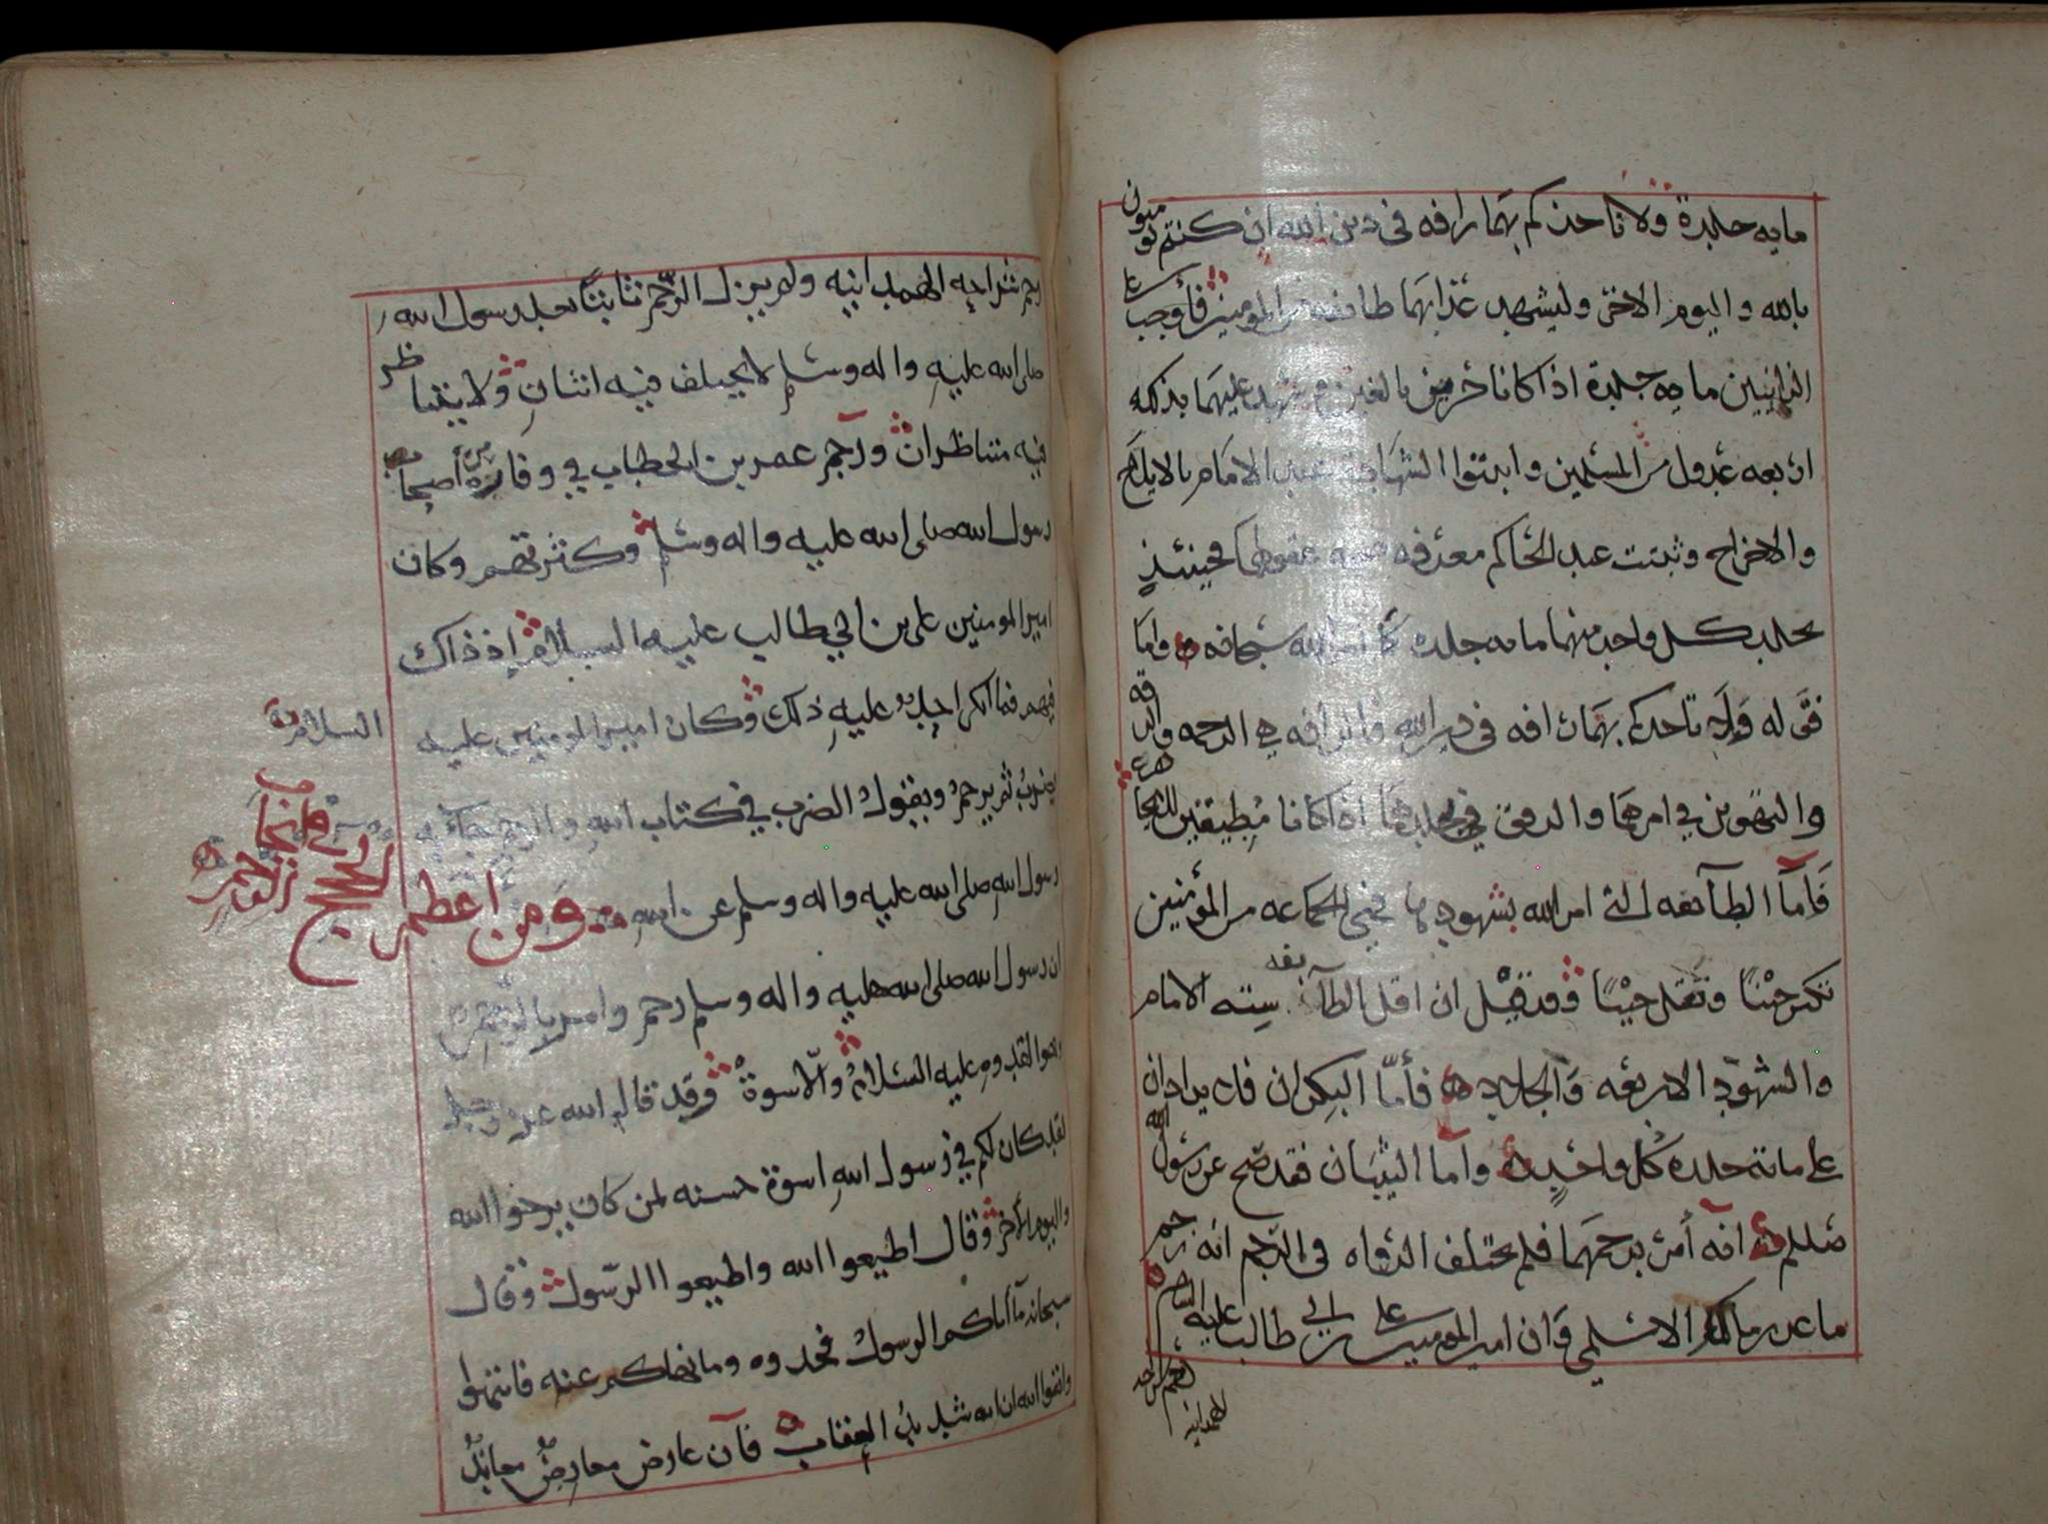 مايه جلدة ولا تاخذكم بهما رافه في دين الله ان كنتم تومنون
بالله واليوم الاخر وليشهد عذابهما طائفه من المومنين فأوجب على
الزانيين مايه جلدة اذا كانا حرين بالغين وشهد عليهما بذلك
اربعه عدول من المسلمين واثبتوا الشهادة عند الامام بالايلاج
والاخراج وثبتت عند الحاكم معرفه صحه عقولهما فحينئذٍ
يجلد كل واحد منهما مايه جلده كما امر الله سبحانه واما
قوله ولا تاخذكم بهما رافه في دين الله فالرافه هي الرحمه والرقه
والتهوين في امرهما والرفق في جلدهما اذا كانا مطيقين
فأما الطآئفه التي امر الله بشهودها فهي الجماعه من المؤمنين
تكثر حيْنًا وتقل حيْنًا وقد قيْل ان اقل الطآئفه سته الامام
والشهود الاربعه والجالد فأمّا البكران فلا يزادان
على مائة جلده كل واحدٍ وأما الثيبان فقد صح عن رسول الله
صللم انه أمر برجمهما فلم يختلف الرواه في الرجم انه رجم
ماعز بن مالك الاسلمي وان امير المومنين علي بن ابي طالب عليه السلام
رجم شراحه الهمدانيه ولم يزل الرّجم ثابتًا بعد رسول الله
صلى الله عليه واله وسلم لا يختلف فيه اثنانِ ولا يتناظر
فيه متناظران ورجم عمر بن الخطاب في وفارة من أصحاب
رسول الله صلى الله عليه واله وسلم وكثرتهم وكان
امير المومنين علي بن ابي طالب عليه السلام اذ ذاك
فيهم فما انكر احدٌ عليهِ ذلك وكان امير المومنين عليه
السلام
يضربُ ثم يرجمُ ويقول الضرب في كتاب الله والرجم جآء به
رسول الله صلى الله عليه واله وسلم عن الله ومن أعظم الحجج
ان رسول الله صلى الله عليه واله وسلم رجم وامر بالرجم
وهو القدوه عليه السلامُ والاسوةُ وقد قال الله عز وجل
لقد كان لكم في رسول اللهِ اسوة حسنه لمن كان يرجوا الله
واليوم الأخر وقال اطيعوا الله واطيعوا الرّسول وقال
سبحانه مآ اتاكم الرسولُ فخذوه وما نهاكم عنه فانتهوا
واتقوا الله ان الله شديدُ العقاب فآن عارض معارضٌ معاندٌ